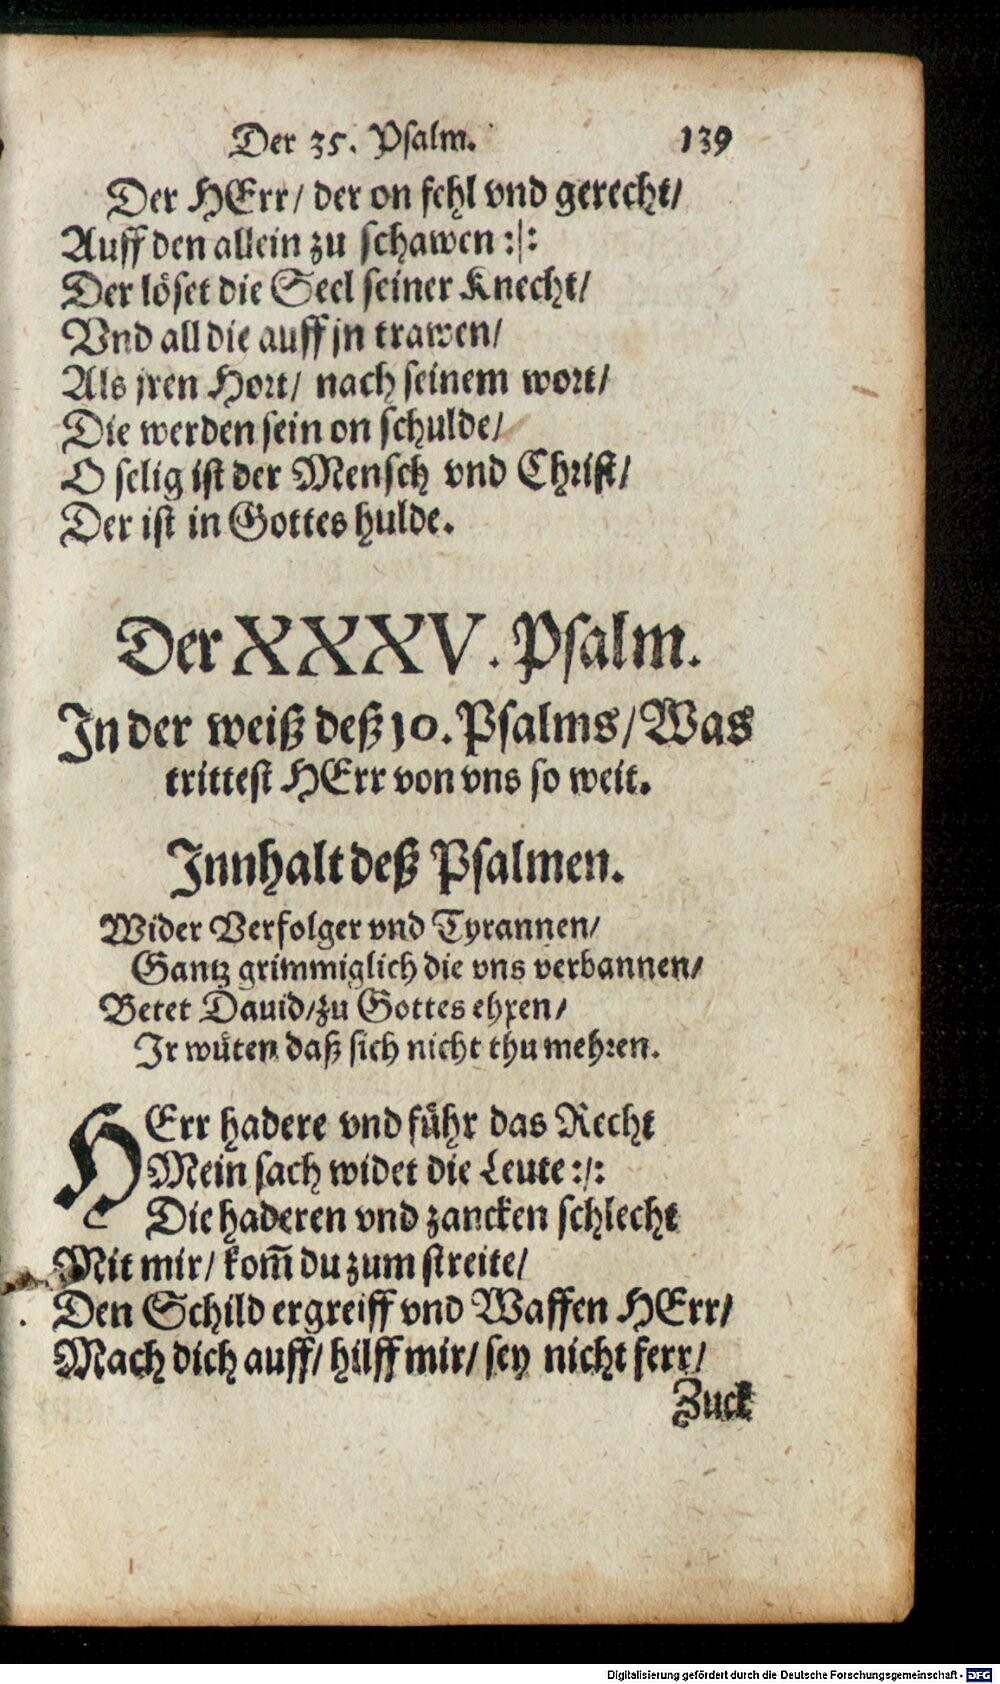 Der 35. Psalm. 139
Der HErr/ der on fehl vnd gerecht/
Auff den allein zu schawen :/:
Der löset die Seel seiner Knecht/
Vnd all die auff jn trawen/
Als jren Hort/ nach seinem wort/
Die werden sein on schulde/
O selig ist der Mensch vnd Christ/
Der ist in Gottes hulde.
Der XXXV. Psalm.
In der weiß deß 10. Psalms/ Was
trittest HErr von vns so weit.
Innhalt deß Psalmen.
Wider Verfolger vnd Tyrannen/
Gantz grimmiglich die vns verbannen/
Betet Dauid/ zu Gottes ehren/
Ir wüten daß sich nicht thu mehren.
HErr hadere vnd führ das Recht
Mein sach widet die Leute :/:
Die haderen vnd zancken schlecht
Mit mir/ kom̃ du zum streite/
Den Schild ergreiff vnd Waffen HErr/
Mach dich auff/ hilff mir/ sey nicht ferr/
Zuck
Digitalisierung gefördert durch die Deutsche Forschungsgemeinschaft - DFG